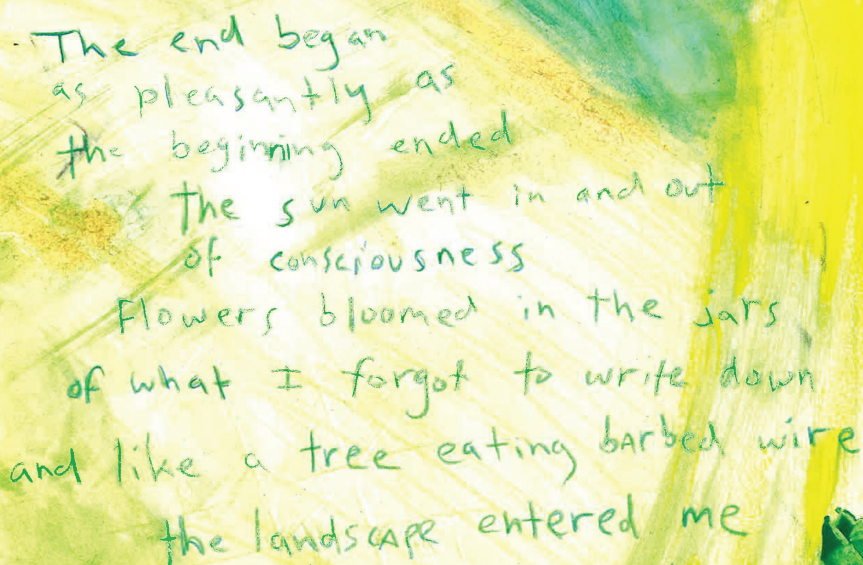 The end began
as pleasantly as
the beginning ended
the sun went in and out
of consciousness
Flowers bloomed in the jars
of what I forgot to write down
and like a tree eating barbed wire
the landscape entered me